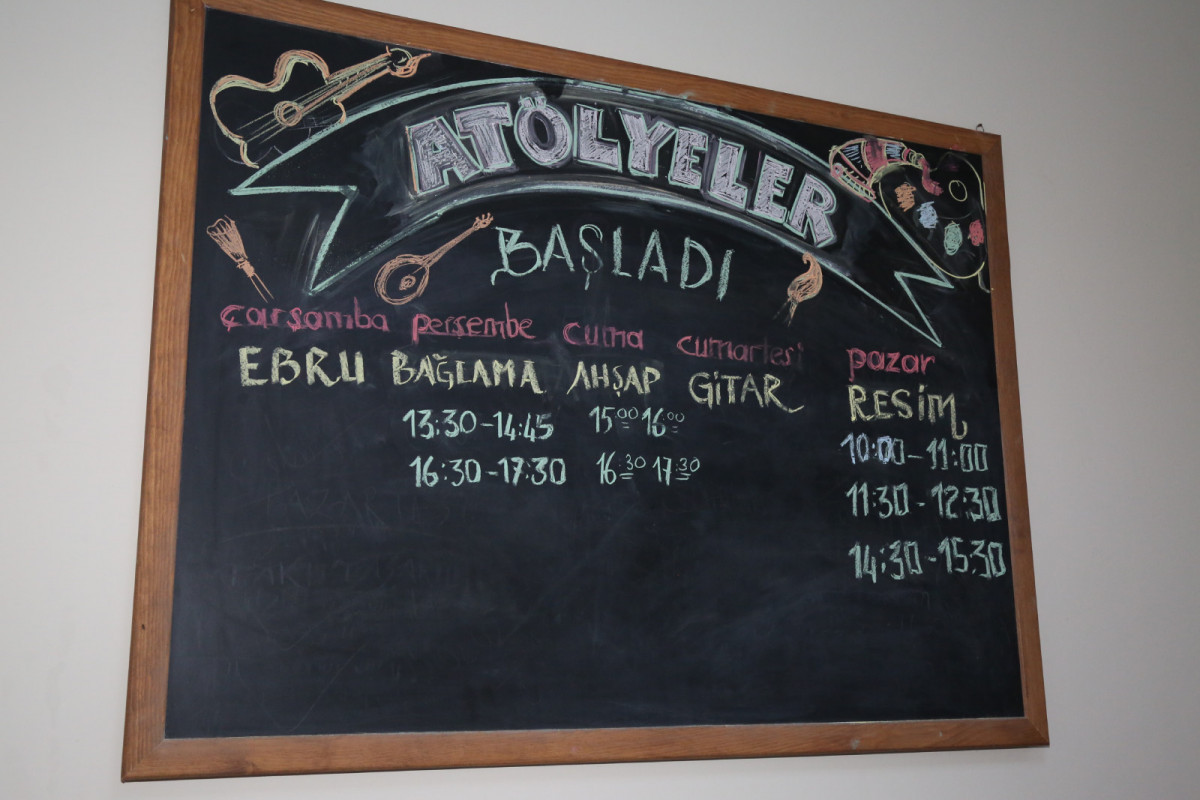 ATÖLYELER
BAŞLADI
çarşamba perşembe cuma cumartesi pazar
EBRU BAĞLAMA AHŞAP GİTAR RESİM
13:30-14:45 15:00 16:00 10:00-11:00
16:30-17:30 16:30 17:30 11:30-12:30
14:30-15:30